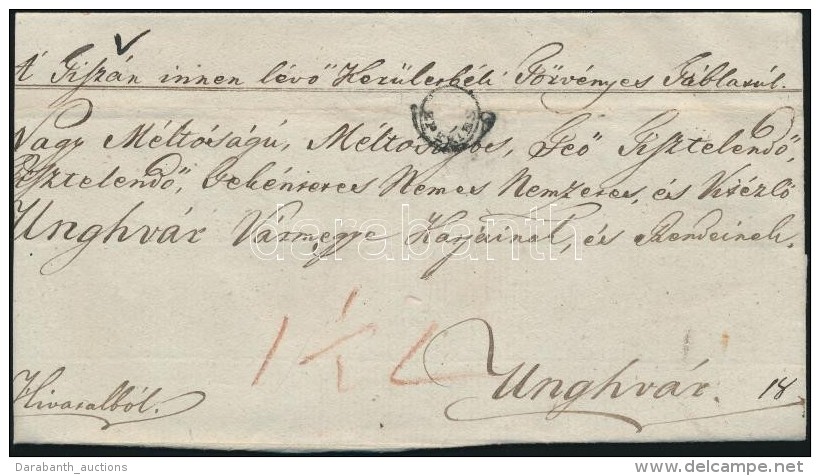 A' Tiszán innen lévő Kerületbéli Törvényes Táblatúl.
EPERIES
Nagy Méltóságú, Méltoságos, Feő Tisztelendő,
Tisztelendő, Tekéntetes Nemes Nemzetes, és Vitézlő
Unghvár Vármegye Karjainak, és Rendeinek.
darabanth
1½ L
Unghvár. 18
Hivatalból.
Darabanth_auctions
www.delcampe.net